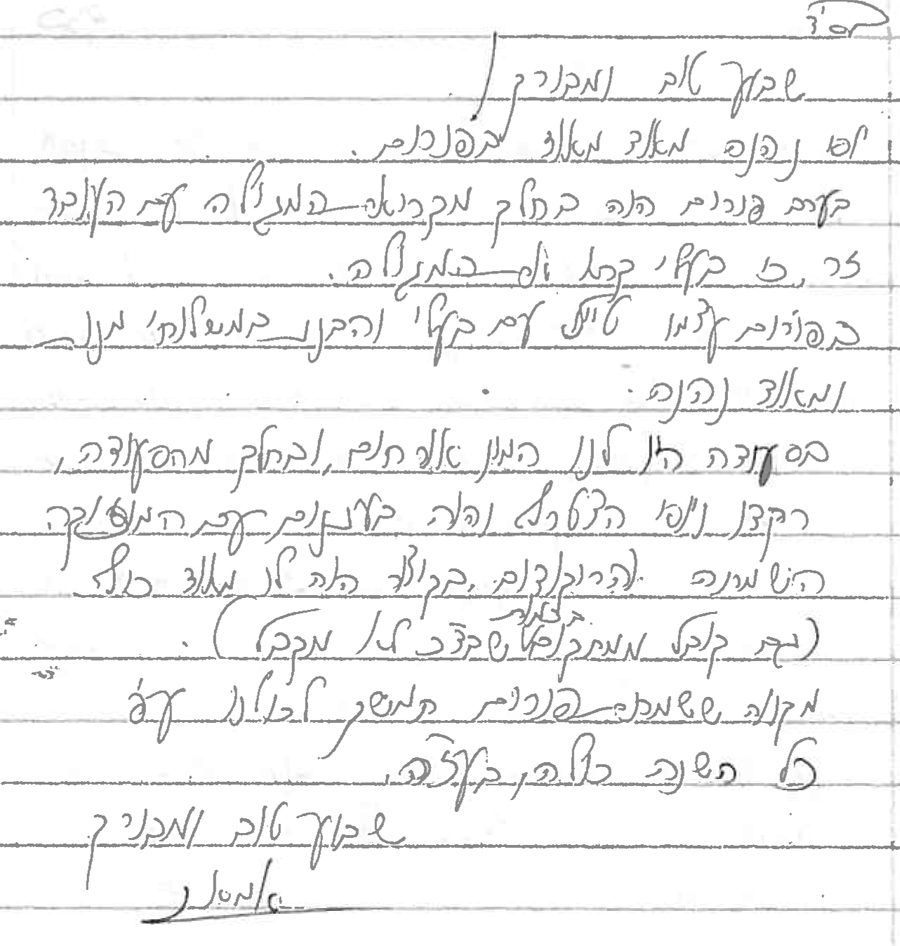 בס״ד
שבוע טוב ומבורך
יוסי נהנה מאוד מאוד בפורים.
בערב פורים היה בחלק מקריאת המגילה עם העובד
זר, כי בעלי קרא את המגילה.
בפורים עצמו טייל עם בעלי והבנו במשלוחי מנות
ומאוד נהנה.
בסעודה היו לנו המון אורחים, ובחלק מהסעודה,
רקדו ויוסי הצטרף והיה בעננים עם המוזיקה
השמחה והריקודים, בקיצור היה לו מאוד כיף
(גם קיבל ממתקים בכמות שבד״כ לא מקבל).
מקווה ששמחת פורים תמשך לכולנו עד
כל השנה כולה, בעז״ה.
שבוע טוב ומבורך